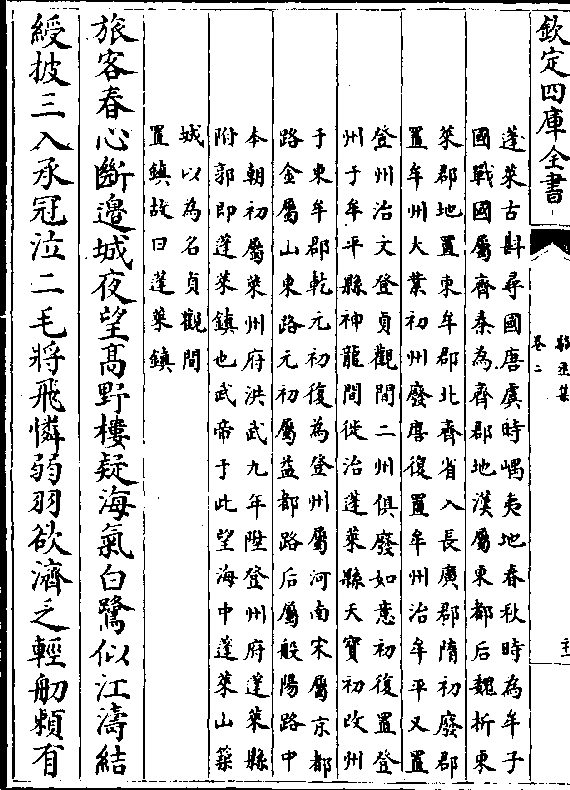 欽定四庫全書
卷二
蓬萊古斟尋國唐虞時嵎夷地春秋時為牟子
國戰國屬齊秦為齊郡地漢屬東都后魏析東
萊郡地置東牟郡北齊省入長廣郡隋初廢郡
置牟州大業初州廢唐復置牟州治牟平又置
登州治文登貞觀間二州俱廢如意初復置登
州于牟平縣神龍間徙治蓬萊縣天寶初改州
于東牟郡乾元初復為登州屬河南宋屬京都
路金屬山東路元初屬益都路后屬般陽路中
本朝初屬萊州府洪武九年陞登州府蓬萊縣
附郭即蓬萊鎮也武帝于此望海中蓬萊山築
城以為名貞觀間
置鎮故曰蓬萊鎮
旅客春心斷邊城夜望髙野樓疑海氣白鷺似江濤結
綬披三入承冠泣二毛將飛憐弱羽欲濟乏輕舠頼有